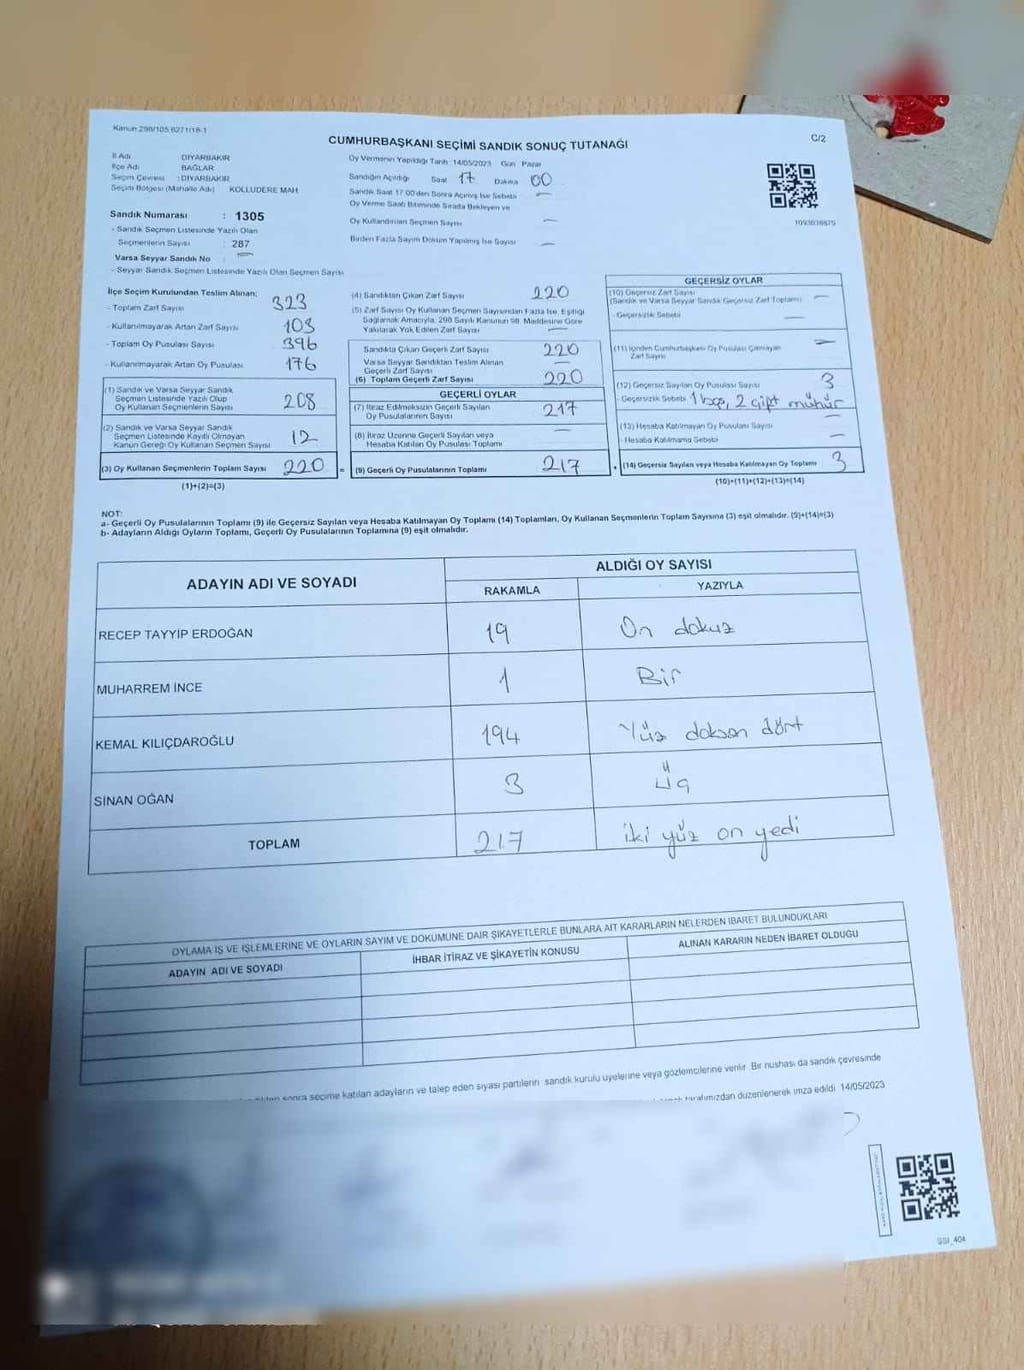 Kanun 298/105 6271/18-1
CUMHURBAŞKANI SEÇİMİ SANDIK SONUÇ TUTANAĞI
C/2
İl Adı DİYARBAKIR
İlçe Adı BAĞLAR
Seçim Çevresi : DİYARBAKIR
Seçim Bölgesi (Mahalle Adı) KOLLUDERE MAH
Sandık Numarası : 1305
- Sandık Seçmen Listesinde Yazılı Olan
Seçmenlerin Sayısı : 287
Varsa Seyyar Sandık No : —
- Seyyar Sandık Seçmen Listesinde Yazılı Olan Seçmen Sayısı
Oy Vermenin Yapıldığı Tarih :14/05/2023 Gün Pazar
Sandığın Açıldığı Saat 17 Dakika 00
Sandık Saat 17 00'den Sonra Açılmış İse Sebebi —
Oy Verme Saati Bitiminde Sırada Bekleyen ve
Oy Kullandırılan Seçmen Sayısı —
Birden Fazla Sayım Döküm Yapılmış İse Sayısı —
1093636875
İlçe Seçim Kurulundan Teslim Alınan;
- Toplam Zarf Sayısı 323
- Kullanılmayarak Artan Zarf Sayısı 103
- Toplam Oy Pusulası Sayısı 396
- Kullanılmayarak Artan Oy Pusulası 176
(1) Sandık ve Varsa Seyyar Sandık
Seçmen Listesinde Yazılı Olup
Oy Kullanan Seçmenlerin Sayısı 208
(2) Sandık ve Varsa Seyyar Sandık
Seçmen Listesinde Kayıtlı Olmayan
Kanun Gereği Oy Kullanan Seçmen Sayısı 12
(3) Oy Kullanan Seçmenlerin Toplam Sayısı 220 =
(1)+(2)=(3)
(4) Sandıktan Çıkan Zarf Sayısı 220
(5) Zarf Sayısı Oy Kullanan Seçmen Sayısından Fazla İse, Eşitliği
Sağlamak Amacıyla, 298 Sayılı Kanunun 98. Maddesine Göre
Yakılarak Yok Edilen Zarf Sayısı —
Sandıkta Çıkan Geçerli Zarf Sayısı 220
Varsa Seyyar Sandıktan Teslim Alınan
Geçerli Zarf Sayısı —
(6) Toplam Geçerli Zarf Sayısı 220
GEÇERLİ OYLAR
(7) İtiraz Edilmeksizin Geçerli Sayılan
Oy Pusulalarının Sayısı 217
(8) İtiraz Üzerine Geçerli Sayılan veya
Hesaba Katılan Oy Pusulası Toplamı —
(9) Geçerli Oy Pusulalarının Toplamı 217 +
GEÇERSİZ OYLAR
(10) Geçersiz Zarf Sayısı
(Sandık ve Varsa Seyyar Sandık Geçersiz Zarf Toplamı) —
- Geçersizlik Sebebi —
(11) İçinden Cumhurbaşkanı Oy Pusulası Çıkmayan
Zarf Sayısı —
(12) Geçersiz Sayılan Oy Pusulası Sayısı 3
- Geçersizlik Sebebi 1 boş, 2 çift mühür
(13) Hesaba Katılmayan Oy Pusulası Sayısı —
- Hesaba Katılmama Sebebi —
(14) Geçersiz Sayılan veya Hesaba Katılmayan Oy Toplamı 3
(10)+(11)+(12)+(13)=(14)
NOT:
a- Geçerli Oy Pusulalarının Toplamı (9) ile Geçersiz Sayılan veya Hesaba Katılmayan Oy Toplamı (14) Toplamları, Oy Kullanan Seçmenlerin Toplam Sayısına (3) eşit olmalıdır. (9)+(14)=(3)
b- Adayların Aldığı Oyların Toplamı, Geçerli Oy Pusulalarının Toplamına (9) eşit olmalıdır.
ADAYIN ADI VE SOYADI
ALDIĞI OY SAYISI
RAKAMLA YAZIYLA
RECEP TAYYİP ERDOĞAN 19 On dokuz
MUHARREM İNCE 1 Bir
KEMAL KILIÇDAROĞLU 194 Yüz doksan dört
SİNAN OĞAN 3 Üç
TOPLAM 217 iki yüz on yedi
OYLAMA İŞ VE İŞLEMLERİNE VE OYLARIN SAYIM VE DÖKÜMÜNE DAİR ŞİKAYETLERLE BUNLARA AİT KARARLARIN NELERDEN İBARET BULUNDUKLARI
ADAYIN ADI VE SOYADI İHBAR İTİRAZ VE ŞİKAYETİN KONUSU ALINAN KARARIN NEDEN İBARET OLDUĞU
sonra seçime katılan adayların ve talep eden siyasi partilerin sandık kurulu üyelerine veya gözlemcilerine verilir. Bir nushası da sandık çevresinde
tarafımızdan düzenlenerek imza edildi 14/05/2023
SSI_404